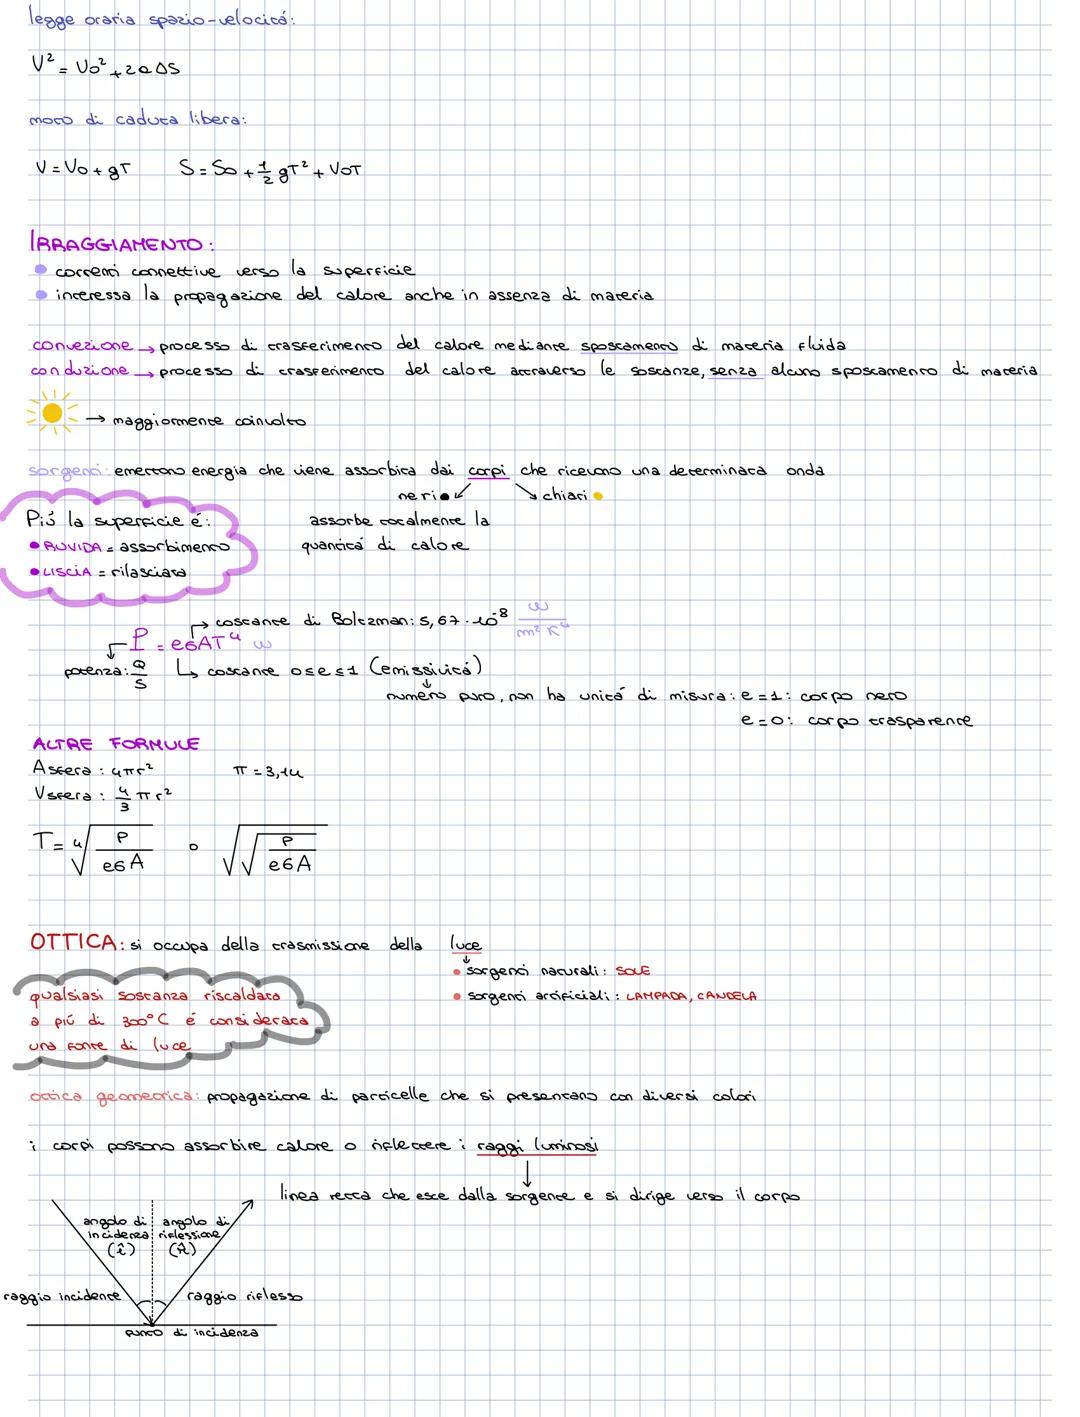 legge oraria spazio-velocitá:
V² = V0² + 2a ΔS
moto di caduta libera:
V = V0 + gT S = S0 + 1/2 gT² + V0T
IRRAGGIAMENTO:
• correnti connettive verso la superficie
• interessa la propagazione del calore anche in assenza di materia
convezione → processo di trasferimento del calore mediante spostamento di materia fluida
conduzione → processo di trasferimento del calore attraverso le sostanze, senza alcuno spostamento di materia
→ maggiormente coinvolto
sorgenti: emettono energia che viene assorbita dai corpi che ricevono una determinata onda
neri • chiari •
Piú la superficie é: assorbe totalmente la
• RUVIDA = assorbimento quantitá di calore
• LISCIA = rilasciata
→ costante di Boltzman: 5,67 · 10⁻⁸ W/m² K⁴
P = eσAT⁴ W
potenza: Q/S ↳ costante 0≤e≤1 (emissivitá)
numero puro, non ha unitá di misura: e = 1: corpo nero
e = 0: corpo trasparente
ALTRE FORMULE
Asfera: 4πr² π = 3,14
Vsfera: 4/3 πr²
T = ⁴√(P/eσA) o √√(P/eσA)
OTTICA: si occupa della trasmissione della luce
• sorgenti naturali: SOLE
qualsiasi sostanza riscaldata • sorgenti artificiali: LAMPADA, CANDELA
a piú di 300°C é considerata
una fonte di luce
ottica geometrica: propagazione di particelle che si presentano con diversi colori
i corpi possono assorbire calore o riflettere i raggi luminosi
linea retta che esce dalla sorgente e si dirige verso il corpo
angolo di incidenza (î) angolo di riflessione (r̂)
raggio incidente raggio riflesso
punto di incidenza